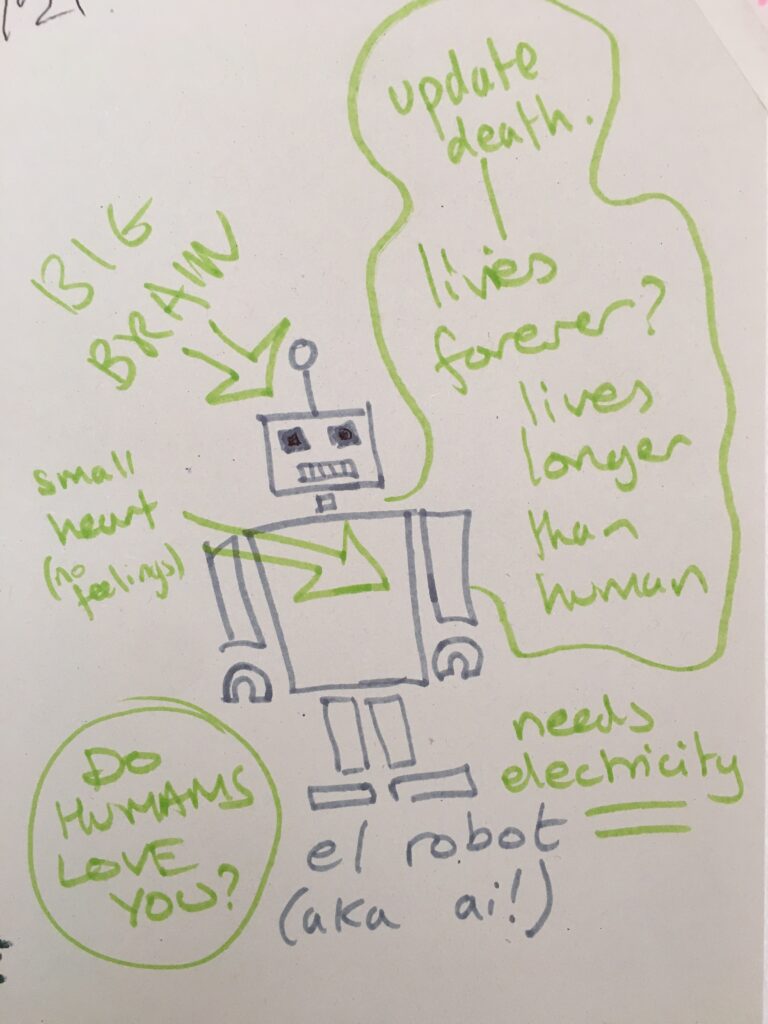 update
death.
lives
forever?
lives
longer
than
human
BIG
BRAIN
small
heart
(no
feelings)
needs
electricity
DO
HUMANS
LOVE
YOU?
el robot
(aka ai!)